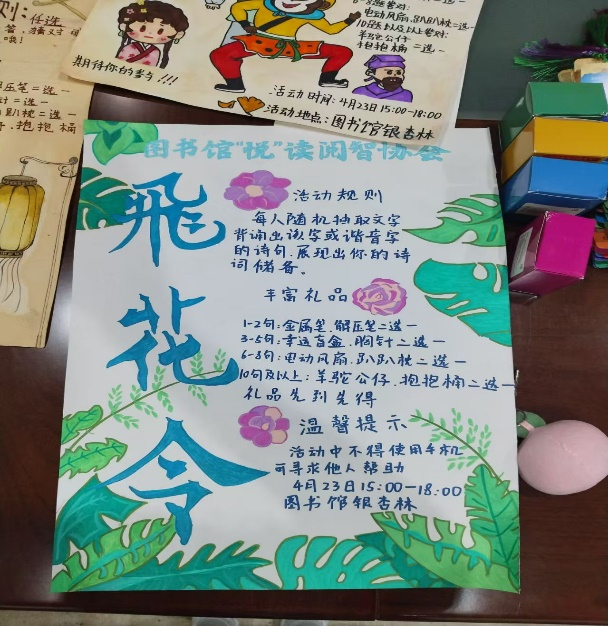 则：任选
二选一
二选一
抱抱桶
期待你的参与!!!
电动风扇、趴趴枕二选一
10题以及以上答对：
羊驼公仔、
抱抱桶 二选一
活动时间：4月23日15:00-18:00
活动地点：图书馆银杏林
图书馆“悦”读阅智协会
飛花令
活动规则
每人随机抽取文字
背诵出该字或谐音字
的诗句，展现出你的诗
词储备。
丰富礼品
1-2句：金属笔、解压笔二选一
3-5句：幸运盲盒、胸针二选一
6-8句：电动风扇、趴趴枕二选一
10句及以上：羊驼公仔、抱抱桶二选一
礼品先到先得
温馨提示
活动中不得使用手机
可寻求他人帮助
4月23日15:00-18:00
图书馆银杏林